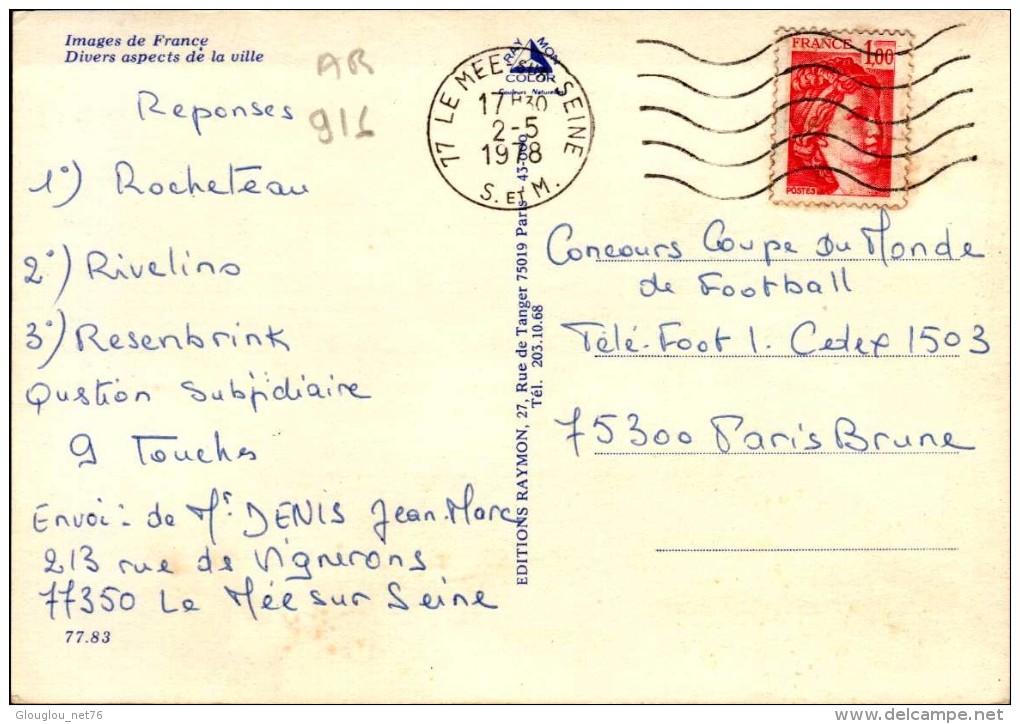 Images de France
Divers aspects de la ville
AR
916
Reponses
1°) Rocheteau
2°) Rivelino
3°) Resenbrink
Qustion Subsidiaire
9 Touches
Envoi: de Mr DENIS Jean.Marc
213 rue des Vignerons
77350 Le Mée sur Seine
77.83
RAYMON
COLOR
Couleurs Naturelles
77 LE MEE SUR SEINE
17 H30
2-5
1978
S. ET M.
EDITIONS RAYMON, 27, Rue de Tanger 75019 Paris
Tél. 203.10.68
FRANCE 1.00
POSTES
Concours Coupe Du Monde
de Football
Télé-Foot 1. Cedex 1503
75300 Paris Brune
Glouglou_net76
delcampe.net